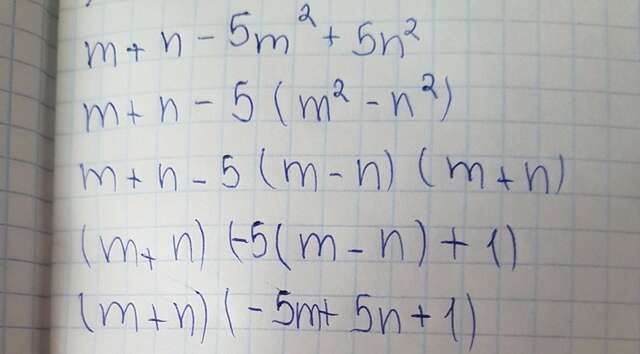 m + n - 5m² + 5n²
m + n - 5 (m² - n²)
m + n - 5 (m - n) (m + n)
(m + n) (-5(m - n) + 1)
(m + n) (-5m + 5n + 1)